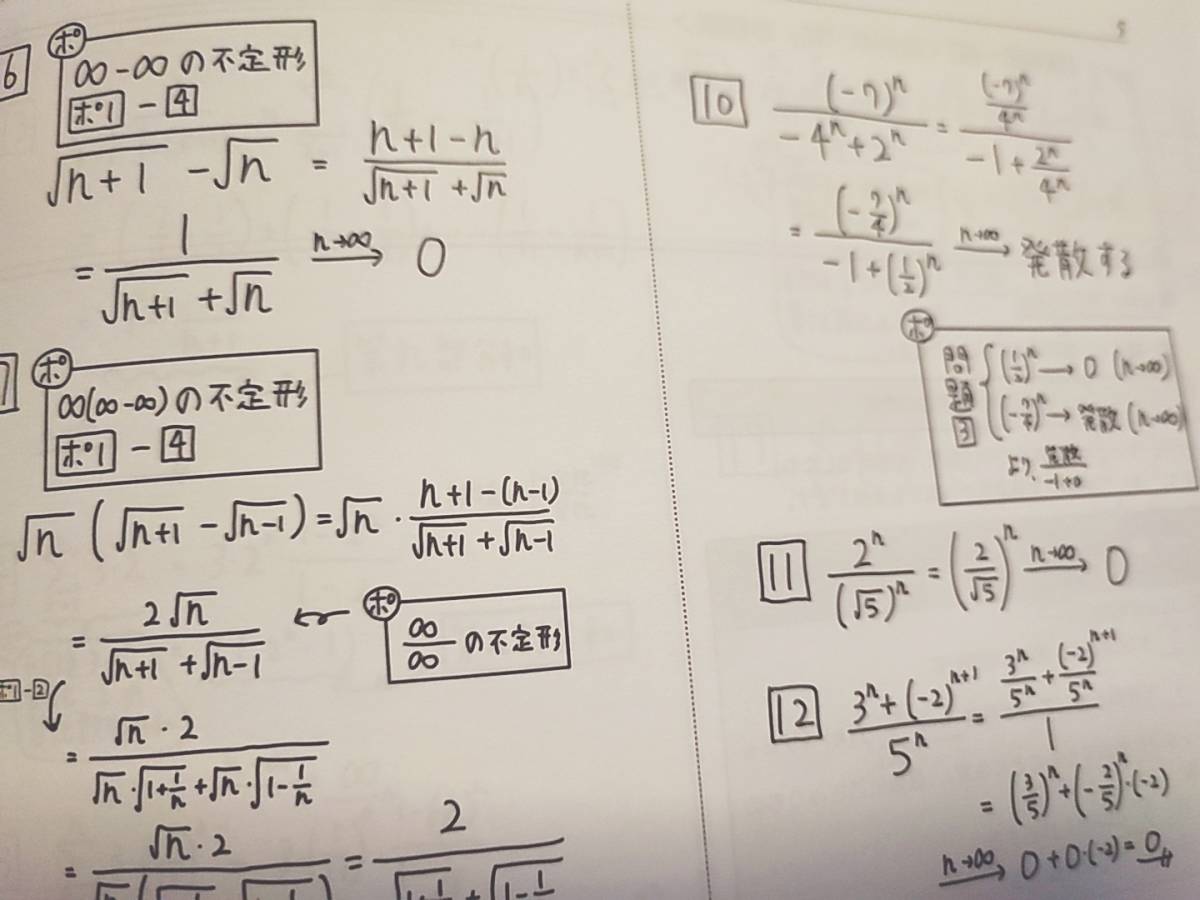 6
ポ
∞-∞ の不定形
ポ1 - 4
√(n+1) - √n = (n+1-n)/(√(n+1) + √n)
= 1/(√(n+1) + √n) n→∞ 0
7
ポ
∞(∞-∞) の不定形
ポ1 - 4
√n (√(n+1) - √(n-1)) = √n · (n+1-(n-1))/(√(n+1) + √(n-1))
= 2√n/(√(n+1) + √(n-1)) ←
ポ
∞/∞ の不定形
ポ1-2
= √n · 2/(√n · √(1+1/n) + √n · √(1-1/n))
= √n · 2/(√n(√(1+1/n) + √(1-1/n))) = 2/(√(1+1/n) + √(1-1/n))
5
10 (-7)^n/(-4^n + 2^n) = ((-7)^n/4^n)/(-1 + 2^n/4^n)
= (-7/4)^n/(-1 + (1/2)^n) n→∞ 発散する
ポ
問題3
(1/2)^n → 0 (n→∞)
(-7/4)^n → 発散 (n→∞)
より、発散/(-1+0)
11 2^n/(√5)^n = (2/√5)^n n→∞ 0
12 (3^n + (-2)^(n+1))/5^n = (3^n/5^n + (-2)^(n+1)/5^n)/1
= (3/5)^n + (-2/5)^n · (-2)
n→∞ 0 + 0·(-2) = 0